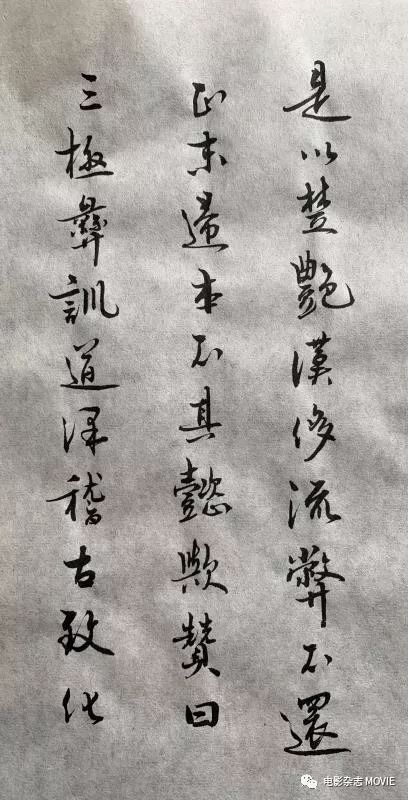 是以楚艶漢侈流弊不還
正末歸本不其懿歟贊曰
三極彝訓道深稽古致化
电影杂志 MOVIE